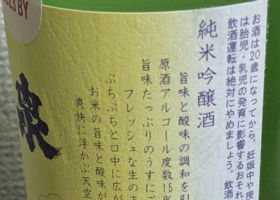 23 BY
泉
純米吟醸酒
お酒は20歳になってから。妊娠中や授
は胎児・乳児の発育に影響するおそれ
飲酒運転は絶対にやめましょう。飲酒
旨味と酸味の調和を引
原酒アルコール度数15%
旨味たっぷりのうすにご
フレッシュな生のま
ぷちぷちと口中に広が
お米の旨味と酸味が
爽快に浮かぶ天空